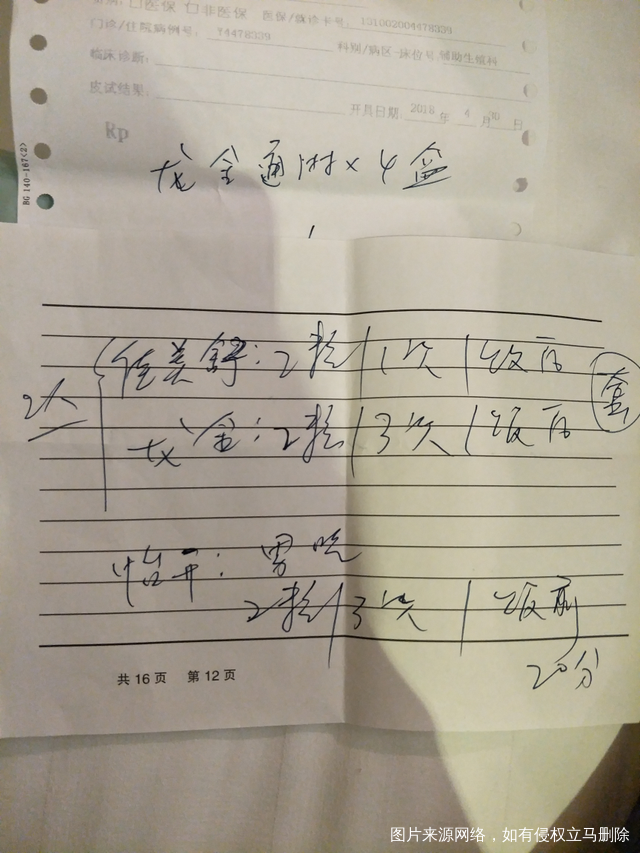 口医保 口非医保 医保/就诊卡号: 131002004478339
门诊/住院病例号: T4478339 科别/病区-床位号 辅助生殖科
临床诊断:
皮试结果:
开具日期 2018年 4月30日
Rp
龙金通淋×4盒
BG 140-167(2)
佳美舒:2粒/1次/饭后
2人
套
龙金:2粒/3次/饭后
怡开:男吃
2粒/3次/饭前
20分
共 16 页 第 12 页
图片来源网络,如有侵权立马删除